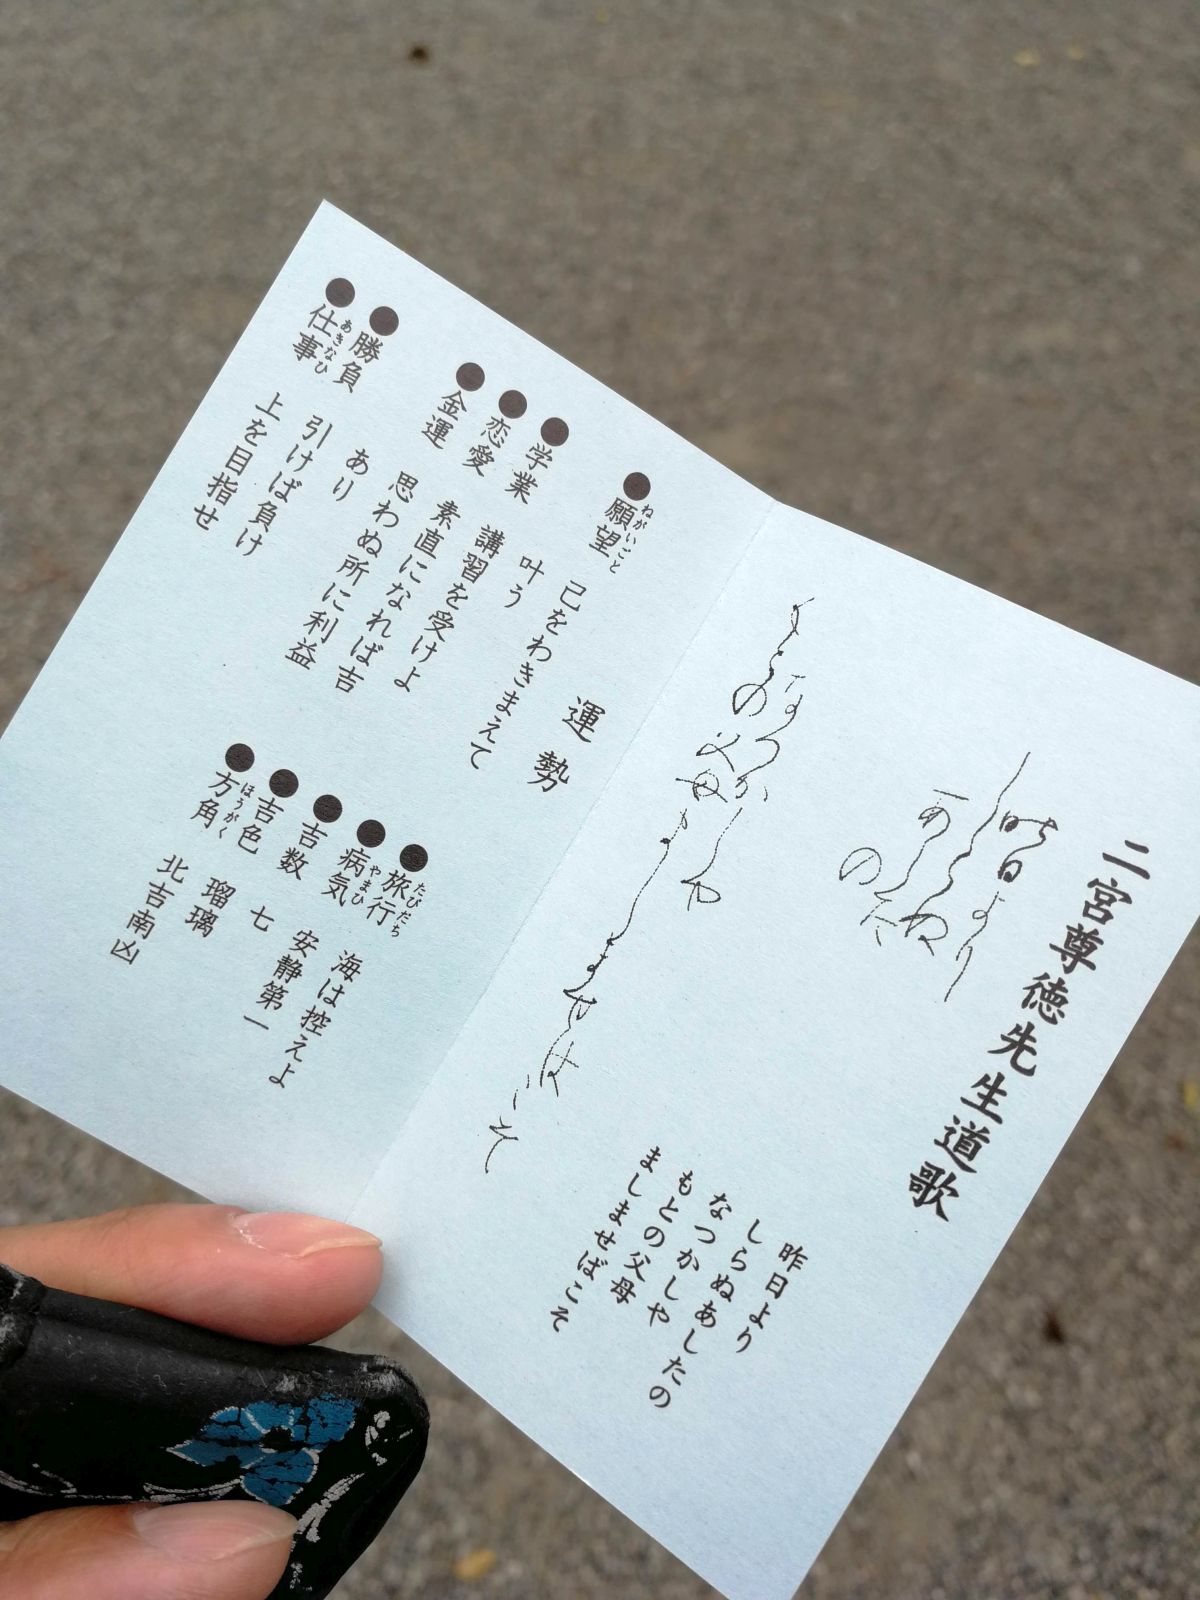 二宮尊徳先生道歌
昨日より
しらぬあしたの
なつかしや
もとの父母
ましませばこそ
昨日より
しらぬあしたの
なつかしや
もとの父母
ましませばこそ
運勢
●願望 己をわきまえて
ねがいごと
叶う
●学業 講習を受けよ
●恋愛 素直になれば吉
●金運 思わぬ所に利益
あり
●勝負 引けば負け
●仕事 上を目指せ
あきなひ
●旅行 海は控えよ
たびだち
●病気 安静第一
やまひ
●吉数 七
●吉色 瑠璃
●方角 北吉南凶
ほうがく